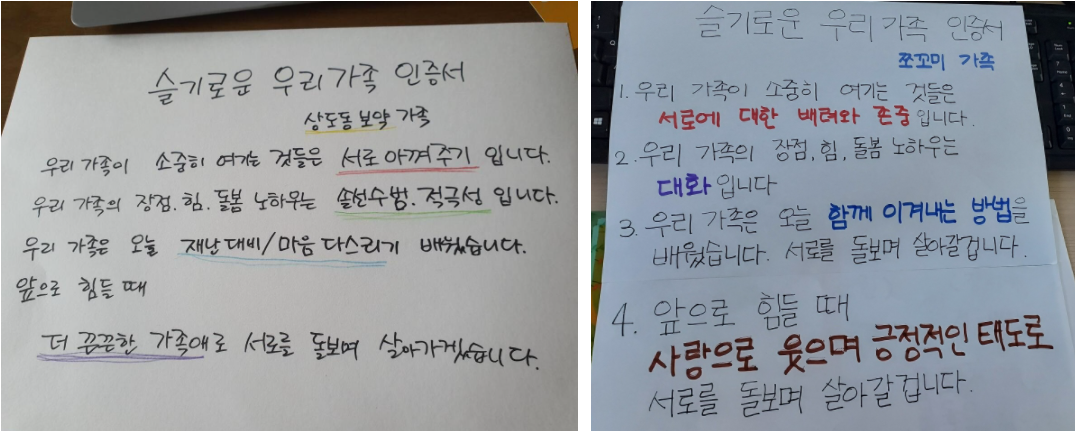 슬기로운 우리가족 인증서
상도동 보약 가족
우리 가족이 소중히 여기는 것들은 서로 아껴주기 입니다.
우리 가족의 장점, 힘, 돌봄 노하우는 솔선수범, 적극성 입니다.
우리 가족은 오늘 재난대비/마음 다스리기 배웠습니다.
앞으로 힘들 때
더 끈끈한 가족애로 서로를 돌보며 살아가겠습니다.
슬기로운 우리가족 인증서
쪼꼬미 가족
1. 우리 가족이 소중히 여기는 것들은
서로에 대한 배려와 존중입니다.
2. 우리 가족의 장점, 힘, 돌봄 노하우는
대화입니다
3. 우리 가족은 오늘 함께 이겨내는 방법을
배웠습니다. 서로를 돌보며 살아갈겁니다.
4. 앞으로 힘들 때
사랑으로 웃으며 긍정적인 태도로
서로를 돌보며 살아갈겁니다.